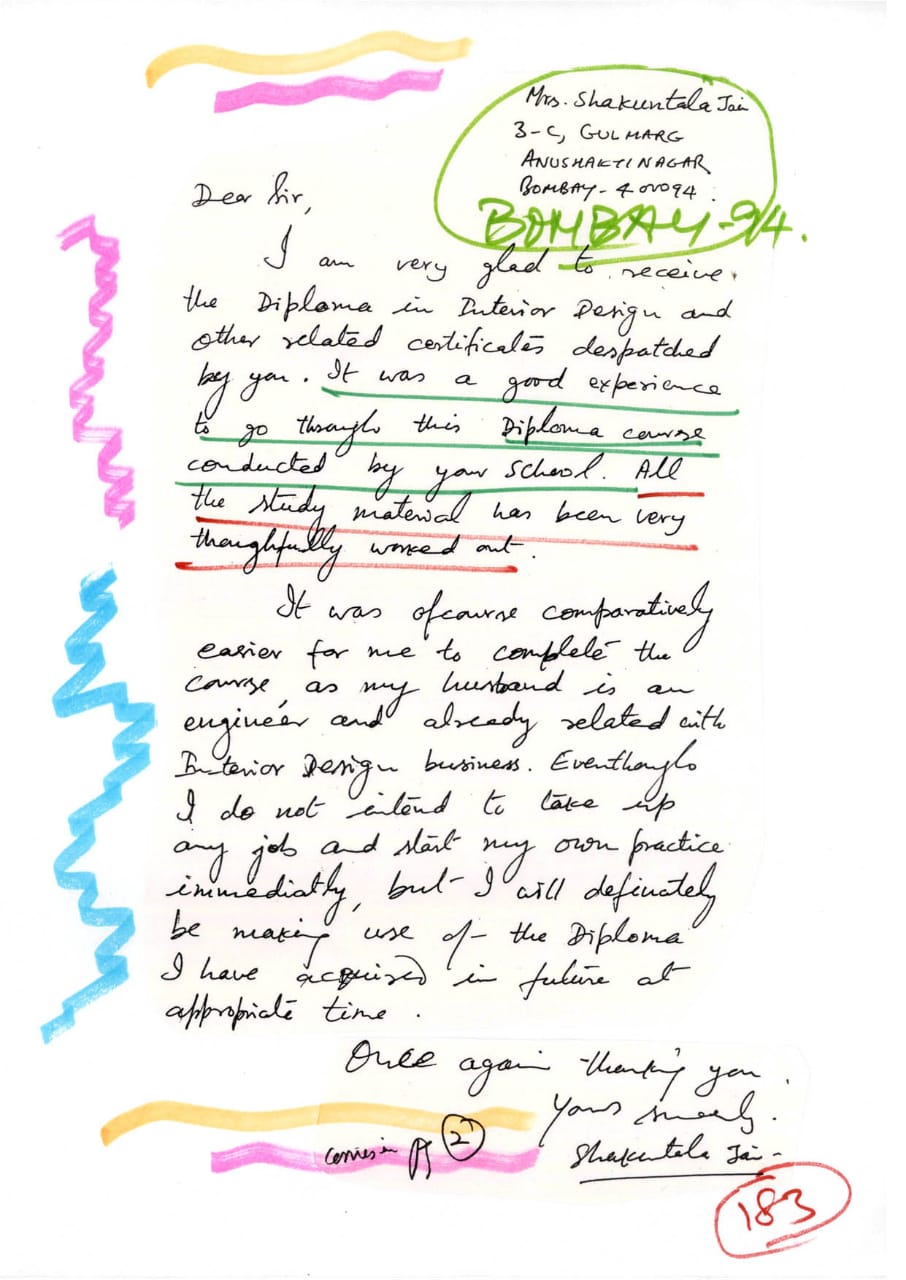 Mrs. Shakuntala Jain
3-C, GULMARG
ANUSHAKTINAGAR
BOMBAY - 400094
BOMBAY-94.
Dear Sir,
I am very glad to receive
the Diploma in Interior Design and
other related certificates despatched
by you. It was a good experience
to go through this Diploma course
conducted by your School. All
the study material has been very
thoughfully worked out.
It was ofcourse comparatively
easier for me to complete the
course, as my husband is an
engineer and already related with
Interior Design business. Eventhough
I do not intend to take up
any job and start my own practice
immediatly, but I will definately
be making use of the Diploma
I have acquired in future at
appropriate time.
Once again thanking you.
Yours sincerely.
Shakuntala Jain
pg 2
183